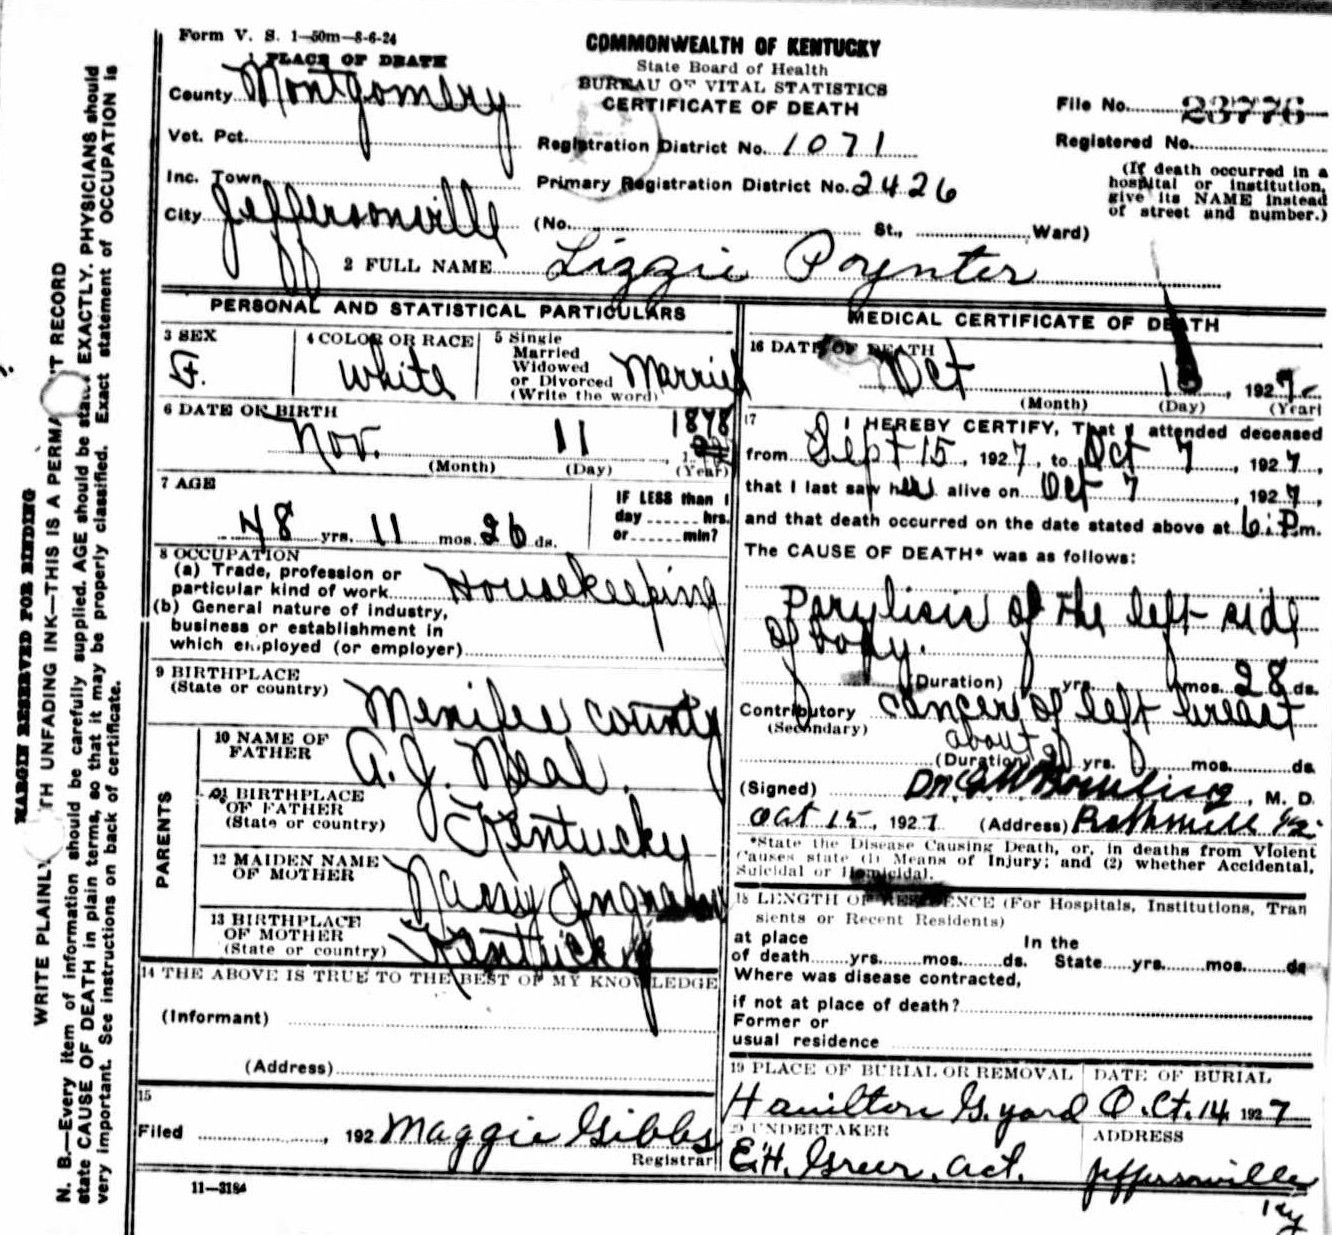 Form V. S. 1—50m—8-6-24
1 PLACE OF DEATH
COMMONWEALTH OF KENTUCKY
State Board of Health
BUREAU OF VITAL STATISTICS
CERTIFICATE OF DEATH
County Montgomery
Vot. Pct.
Inc. Town
City Jeffersonville
Registration District No. 1071
Primary Registration District No. 2426
(No. St., Ward)
File No. 23776
Registered No.
(If death occurred in a
hospital or institution,
give its NAME instead
of street and number.)
2 FULL NAME Lizzie Poynter
PERSONAL AND STATISTICAL PARTICULARS
3 SEX
F.
4 COLOR OR RACE
White
5 Single
Married
Widowed
or Divorced
(Write the word)
Married
6 DATE OF BIRTH
Nov. 11 1878
(Month) (Day) (Year)
7 AGE
48 yrs. 11 mos. 26 ds.
IF LESS than 1
day hrs.
or min?
8 OCCUPATION
(a) Trade, profession or
particular kind of work Housekeeping
(b) General nature of industry,
business or establishment in
which employed (or employer)
9 BIRTHPLACE
(State or country)
Menifee county
PARENTS
10 NAME OF
FATHER
A. J. Neal.
11 BIRTHPLACE
OF FATHER
(State or country)
Kentucky
12 MAIDEN NAME
OF MOTHER
Ingram
13 BIRTHPLACE
OF MOTHER
(State or country)
Kentucky
14 THE ABOVE IS TRUE TO THE BEST OF MY KNOWLEDGE
(Informant)
(Address)
15
Filed , 192 Maggie Gibbs
Registrar
11—3184
MEDICAL CERTIFICATE OF DEATH
16 DATE OF DEATH
Oct , 1927
(Month) (Day) (Year)
17 I HEREBY CERTIFY, That I attended deceased
from Sept 15, 1927, to Oct 7, 1927,
that I last saw her alive on Oct 7, 1927,
and that death occurred on the date stated above at 6 P.m.
The CAUSE OF DEATH* was as follows:
Parylisis of the left side
of body.
(Duration) yrs. mos. 28 ds.
Contributory cancer of left breast
(Secondary)
about 2
(Duration) yrs. mos. ds.
(Signed) Dr. Bowling, M. D.
Oct 15, 1927 (Address)
*State the Disease Causing Death, or, in deaths from Violent
Causes state (1) Means of Injury; and (2) whether Accidental,
Suicidal or Homicidal.
18 LENGTH OF RESIDENCE (For Hospitals, Institutions, Tran
sients or Recent Residents)
at place In the
of death yrs. mos. ds. State yrs. mos. ds
Where was disease contracted,
if not at place of death?
Former or
usual residence
19 PLACE OF BURIAL OR REMOVAL
Hamilton G. yard
DATE OF BURIAL
Oct. 14, 1927
20 UNDERTAKER
E.H. Greer. act.
ADDRESS
Jeffersonville
Ky
MARGIN RESERVED FOR BINDING
WRITE PLAINLY WITH UNFADING INK—THIS IS A PERMANENT RECORD
N. B.—Every item of information should be carefully supplied. AGE should be stated EXACTLY. PHYSICIANS should
state CAUSE OF DEATH in plain terms, so that it may be properly classified. Exact statement of OCCUPATION is
very important. See instructions on back of certificate.